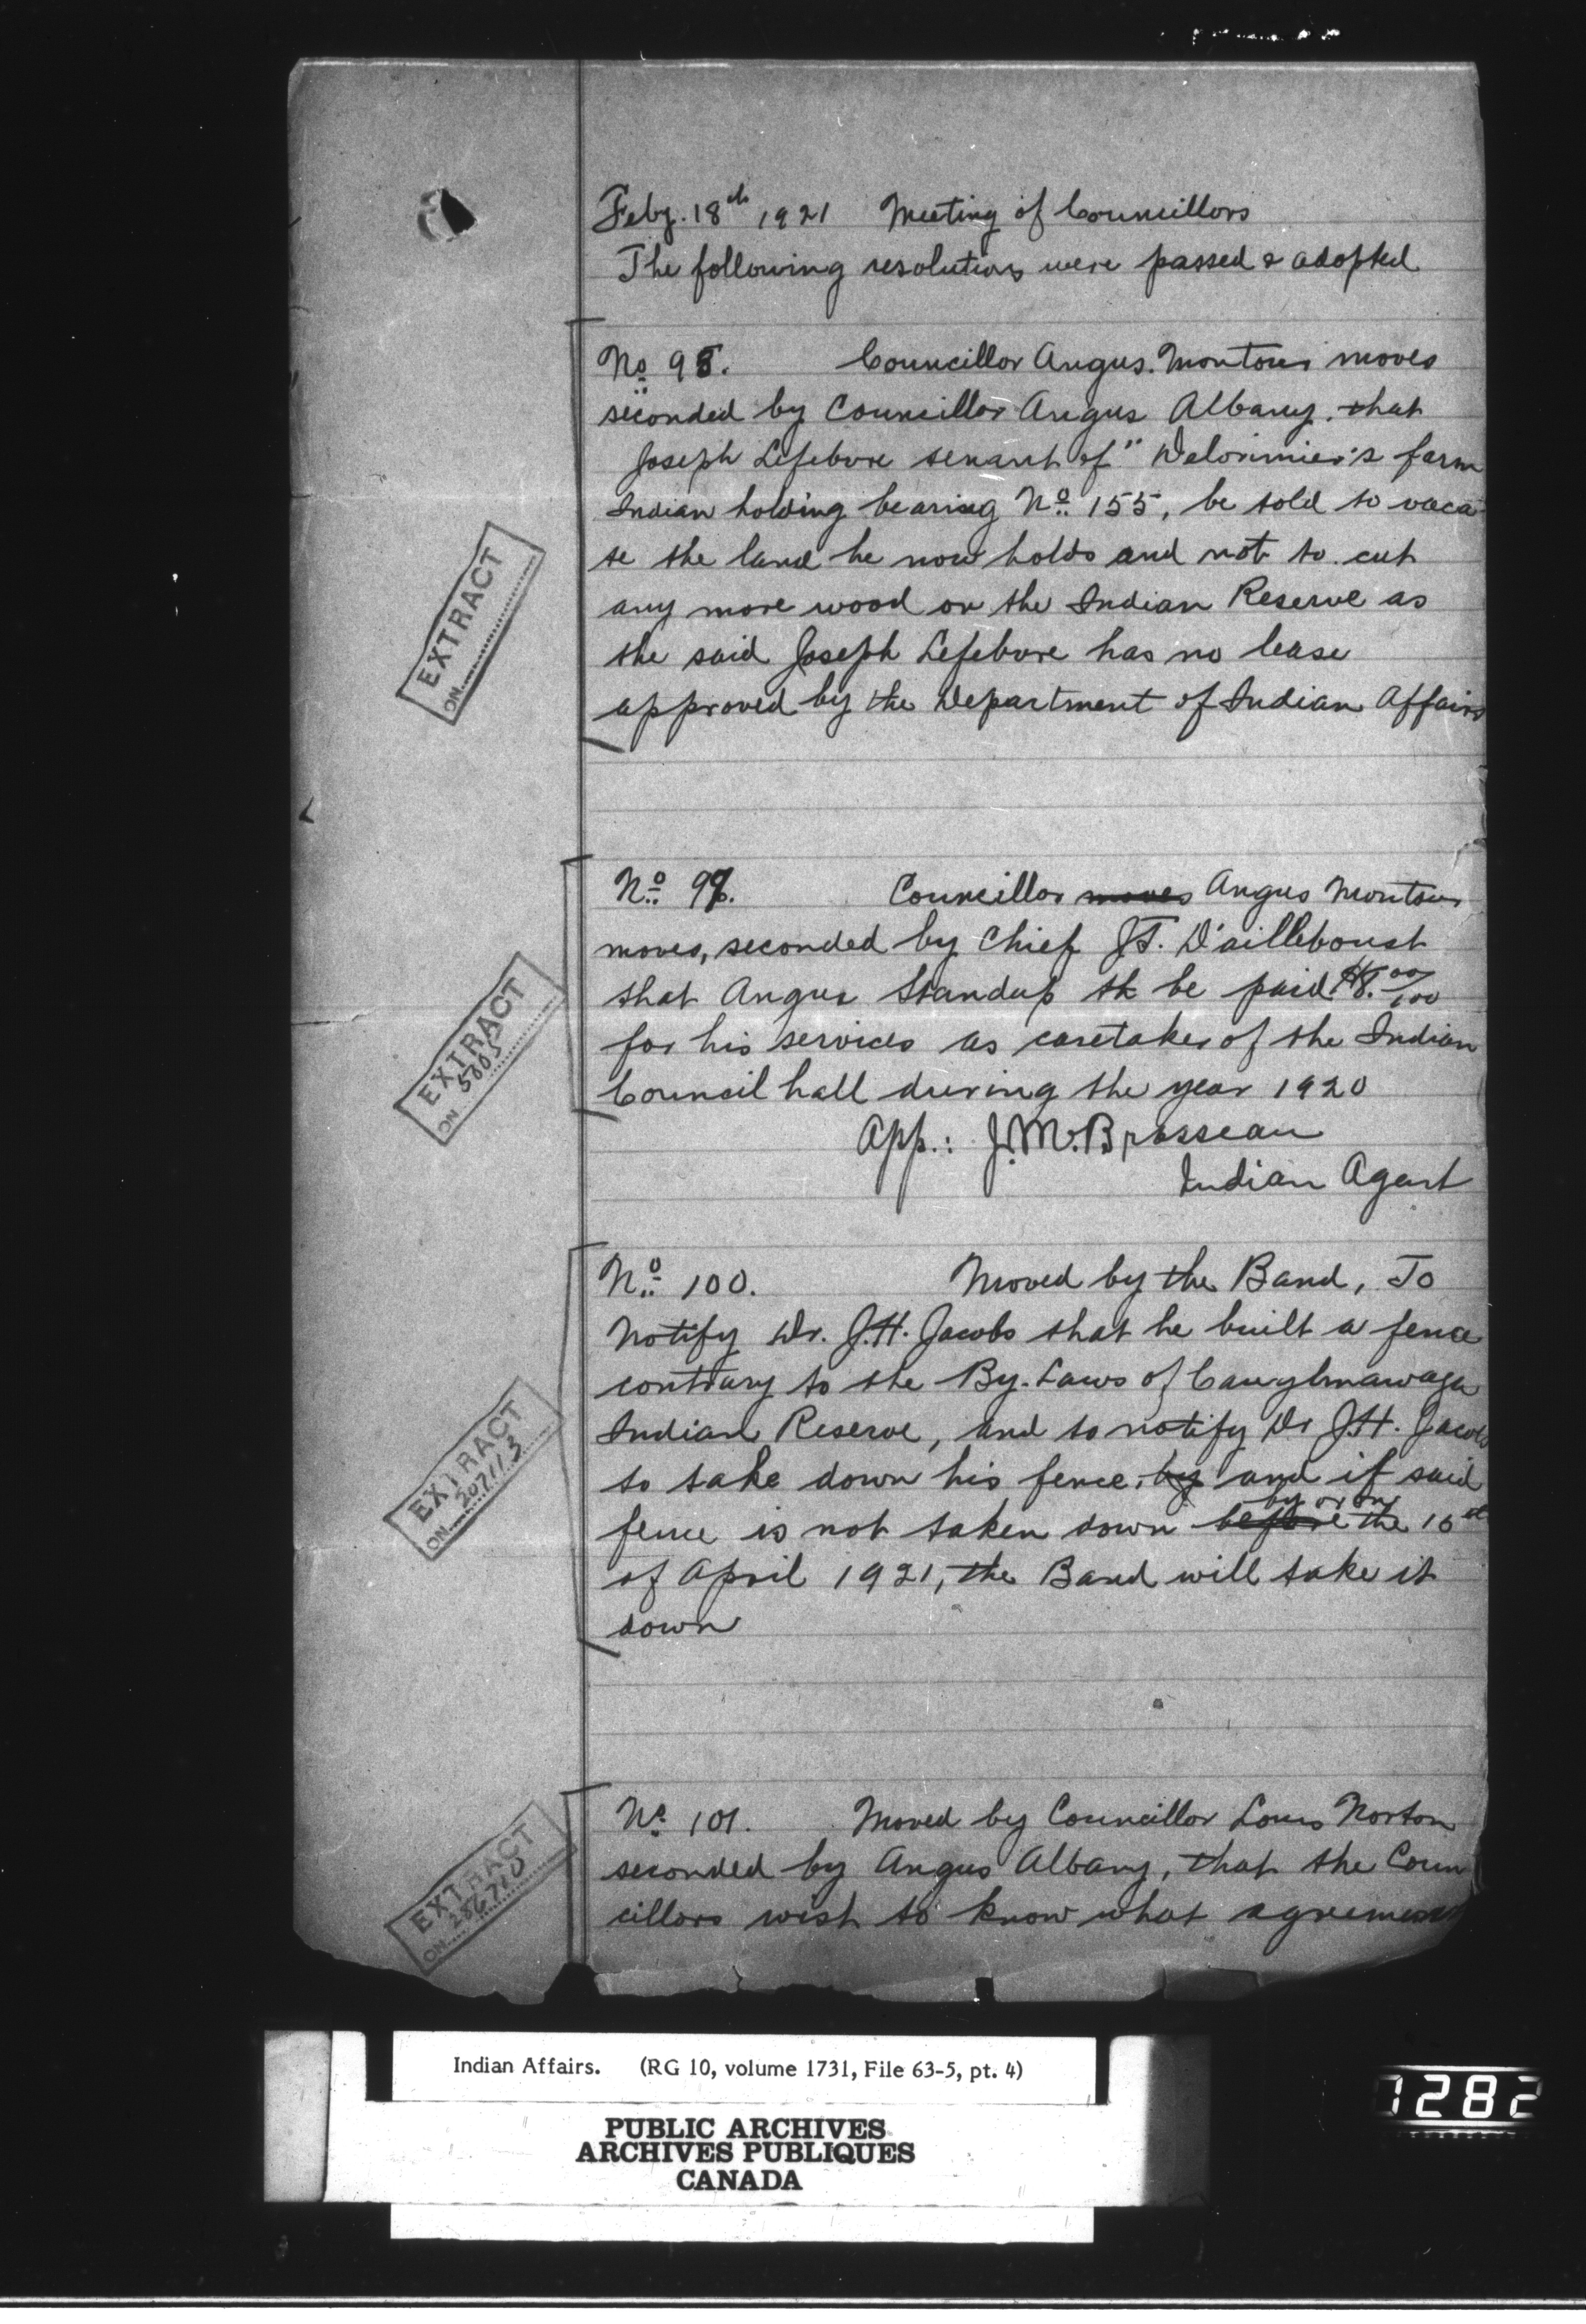 Feby. 18th 1921 Meeting of Councillors
The following resolutions were passed & adopted
No 98. Councillor Angus Montour moves
seconded by Councillor Angus Albany, that
Joseph Lefebvre tenant of "Delorimier's farm
Indian holding bearing No 155, be told to vaca
te the land he now holds and not to cut
any more wood on the Indian Reserve as
the said Joseph Lefebvre has no lease
approved by the Department of Indian Affairs
EXTRACT
ON
No 99. Councillor moves Angus Montour
moves, seconded by Chief J.T. D'ailleboust
that Angus Standup be paid $8.00/100
for his services as caretaker of the Indian
Council hall during the year 1920
App.: J.M. Brosseau
Indian Agent
EXTRACT
ON 5805
No 100. Moved by the Band, To
Notify Dr. J.H. Jacobs that he built a fence
contrary to the By-Laws of Caughnawaga
Indian Reserve, and to notify Dr J.H. Jacobs
to take down his fence, by and if said
by or on
fence is not taken down before the 16th
of April 1921, the Band will take it
down
EXTRACT
ON
No 101. Moved by Councillor Louis Norton
seconded by Angus Albany, that the Coun
cillors wish to know what agreement
EXTRACT
ON
Indian Affairs. (RG 10, volume 1731, File 63-5, pt. 4)
PUBLIC ARCHIVES
ARCHIVES PUBLIQUES
CANADA
7282